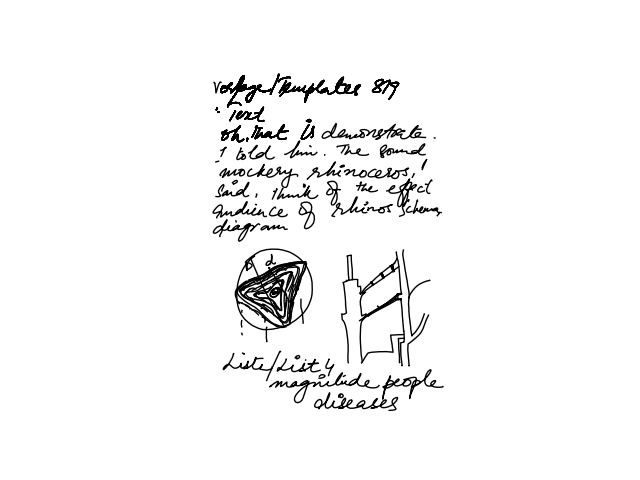 Vorlage/Templates 879
: Text
Oh, That is demonstrate.
I told him. The sound
mockery rhinoceros, I
said, Think of the effect
audience of rhinos Schema,
diagram
D d
Liste/List 4
magnitude people
diseases